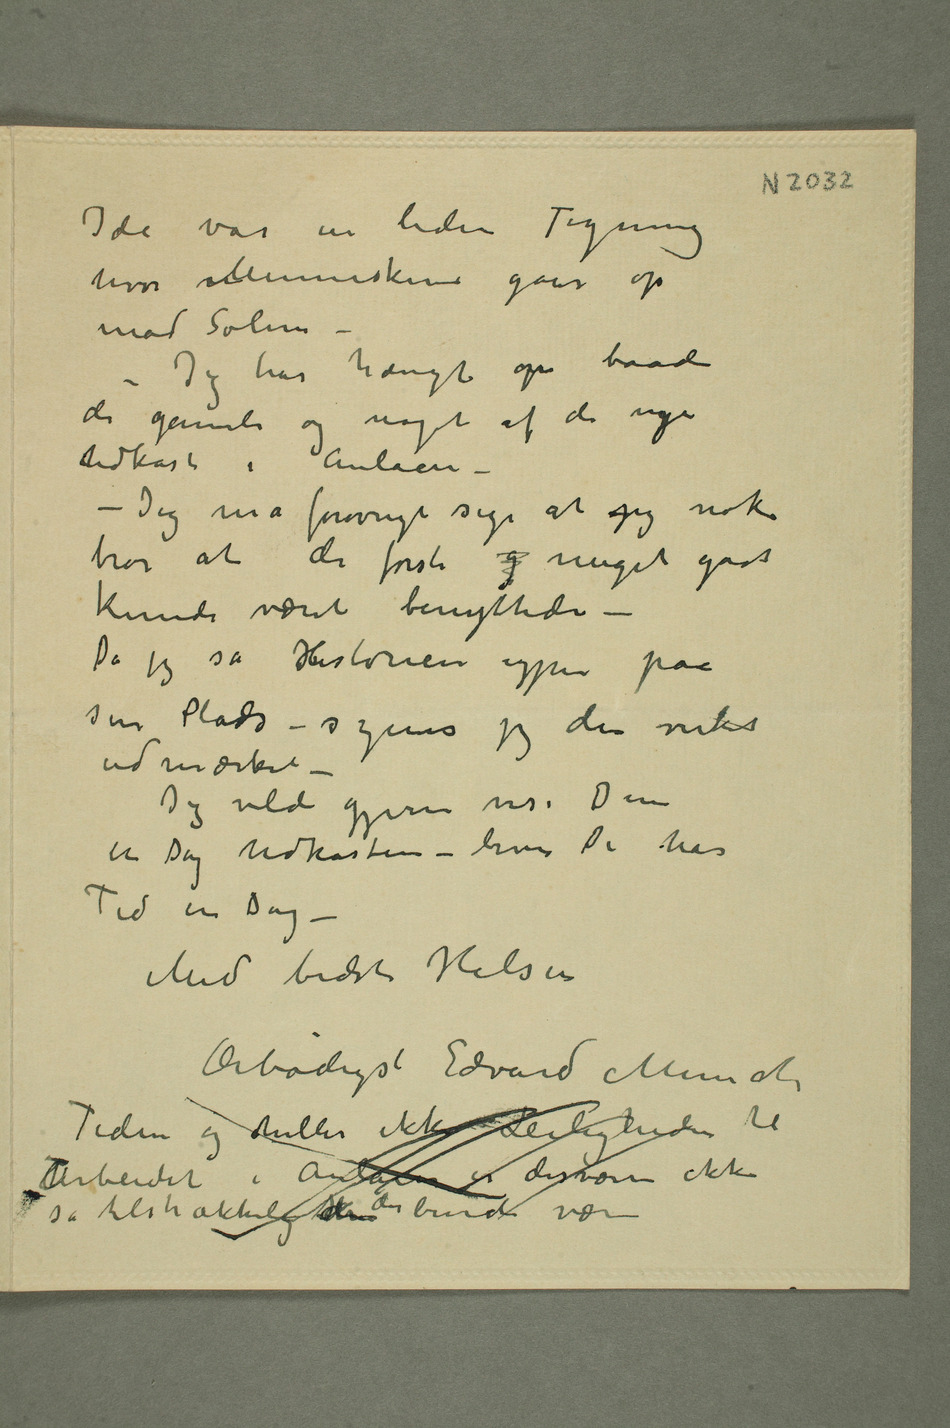 N 2032
Ide var en liden Tegning
hvor Menneskene gaar op
mod Solen –
– Jeg har hængt op baade
de gamle og noget af de nye
Udkast i Aulaen –
– Jeg må forøvrigt sige at jeg nok
tror at de første g meget godt
kunde været benyttede –
Da jeg så Historien igjen paa
sin Plads – synes jeg den virket
udmærket –
Jeg vilde gjerne vise Dem
en Dag Udkastene – hvis De har
Tid en Dag –
Med bedste Hilsen
Ærbødigst Edvard Munch
Tiden og heller ikke Leiligheden til
Arbeidet i Aulaen er desværre ikke
så tilstrækkelig den burde være